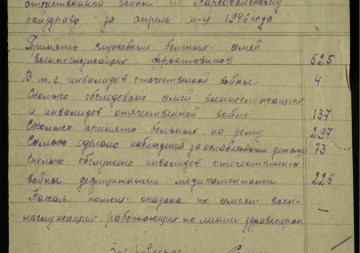 отечественной войны по
райздраву за апрель м-ц 1946 года
Принято служебных больных семей
военнослужащих фронтовиков 625
В т.ч. инвалидов отечественной войны 4
Сколько обследовано семей военнослужащих
и инвалидов отечественной войны 137
Сколько принято больных на дому 297
Сколько сделано наблюдений за ослабленными детьми 73
Сколько обслужено инвалидов отечественной
войны дефицитными медикаментами 226
Какая помощь оказана по семьям воен-
нослужащих работающих по линии здравоохран. —